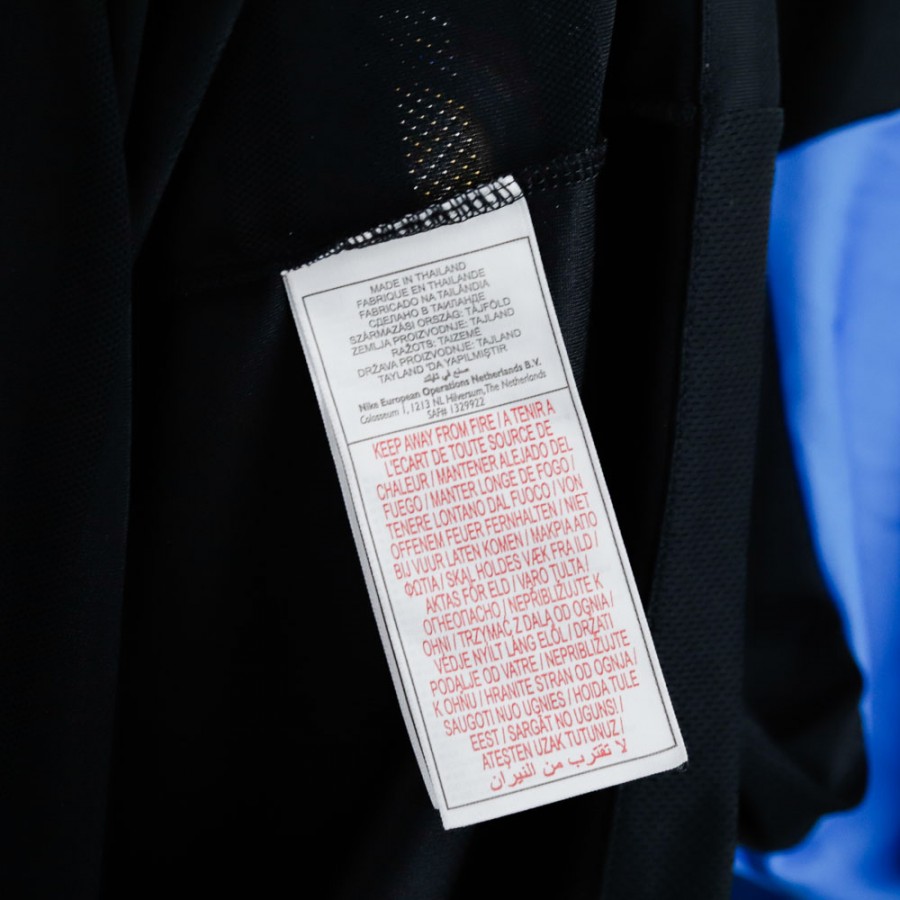 MADE IN THAILAND
FABRIQUE EN THAILANDE
FABRICADO NA TAILÂNDIA
СДЕЛАНО В ТАИЛАНДЕ
SZÁRMAZÁSI ORSZÁG: TÁJFÖLD
ZEMLJA PROIZVODNJE: TAJLAND
RAŽOTS: TAIZEMĒ
DRŽAVA PROIZVODNJE: TAJLAND
TAYLAND 'DA YAPILMIŞTIR
صنع في تايلند
Nike European Operations Netherlands B.V.
Colosseum 1, 1213 NL Hilversum, The Netherlands
SAF# 1329922
KEEP AWAY FROM FIRE / A TENIR A
L'ECART DE TOUTE SOURCE DE
CHALEUR / MANTENER ALEJADO DEL
FUEGO / MANTER LONGE DE FOGO /
TENERE LONTANO DAL FUOCO / VON
OFFENEM FEUER FERNHALTEN / NIET
BIJ VUUR LATEN KOMEN / ΜΑΚΡΙΑ ΑΠΟ
ΦΩΤΙΑ / SKAL HOLDES VÆK FRA ILD /
AKTAS FÖR ELD / VARO TULTA /
ОГНЕОПАСНО / NEPŘIBLIŽUJTE K
OHNI / TRZYMAĆ Z DALA OD OGNIA /
VÉDJE NYÍLT LÁNG ELŐL / DRŽATI
PODALJE OD VATRE / NEPRIBLIŽUJTE
K OHŇU / HRANITE STRAN OD OGNJA /
SAUGOTI NUO UGNIES / HOIDA TULE
EEST / SARGĀT NO UGUNS /
ATEŞTEN UZAK TUTUNUZ /
لا تقترب من النيران